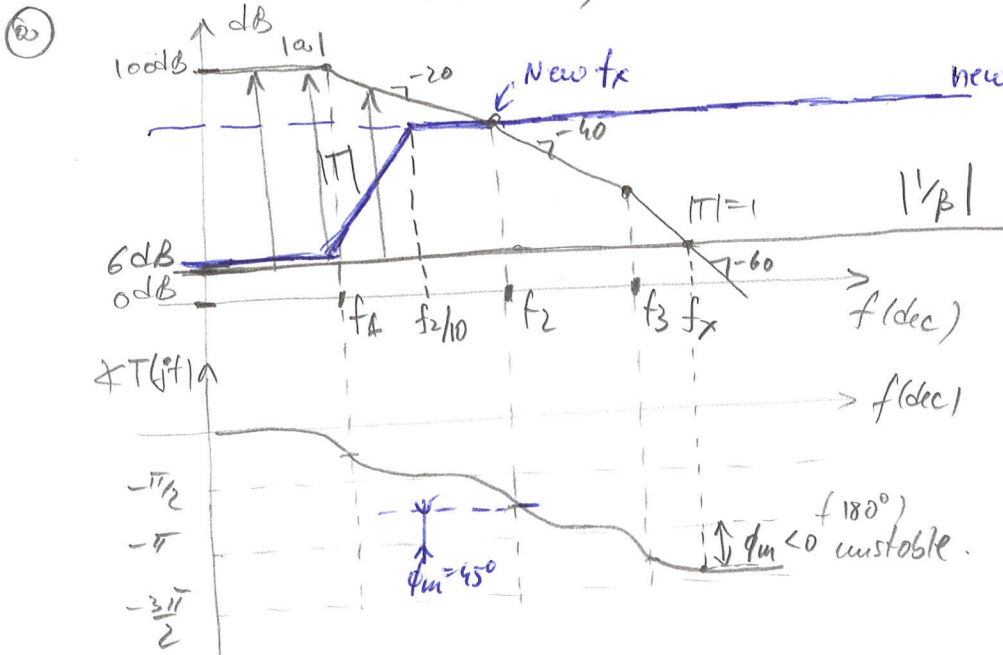 (a)
dB
100dB
|a|
-20
New fx
new
-40
|T|
|T|=1
|1/β|
6dB
-60
0dB
f1
f2/10
f2
f3
fx
f(dec)
∢T(jf)
f(dec)
-π/2
-π
-3π/2
ϕm=45°
(180°)
ϕm<0 unstable.